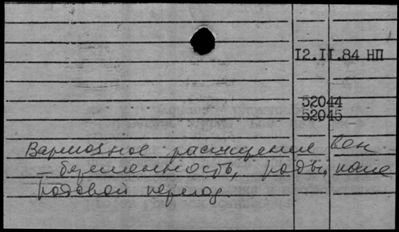 12.II.84 НП
52044
52045
Варикозное расширение вен
- беременность, роды, после
родовой период